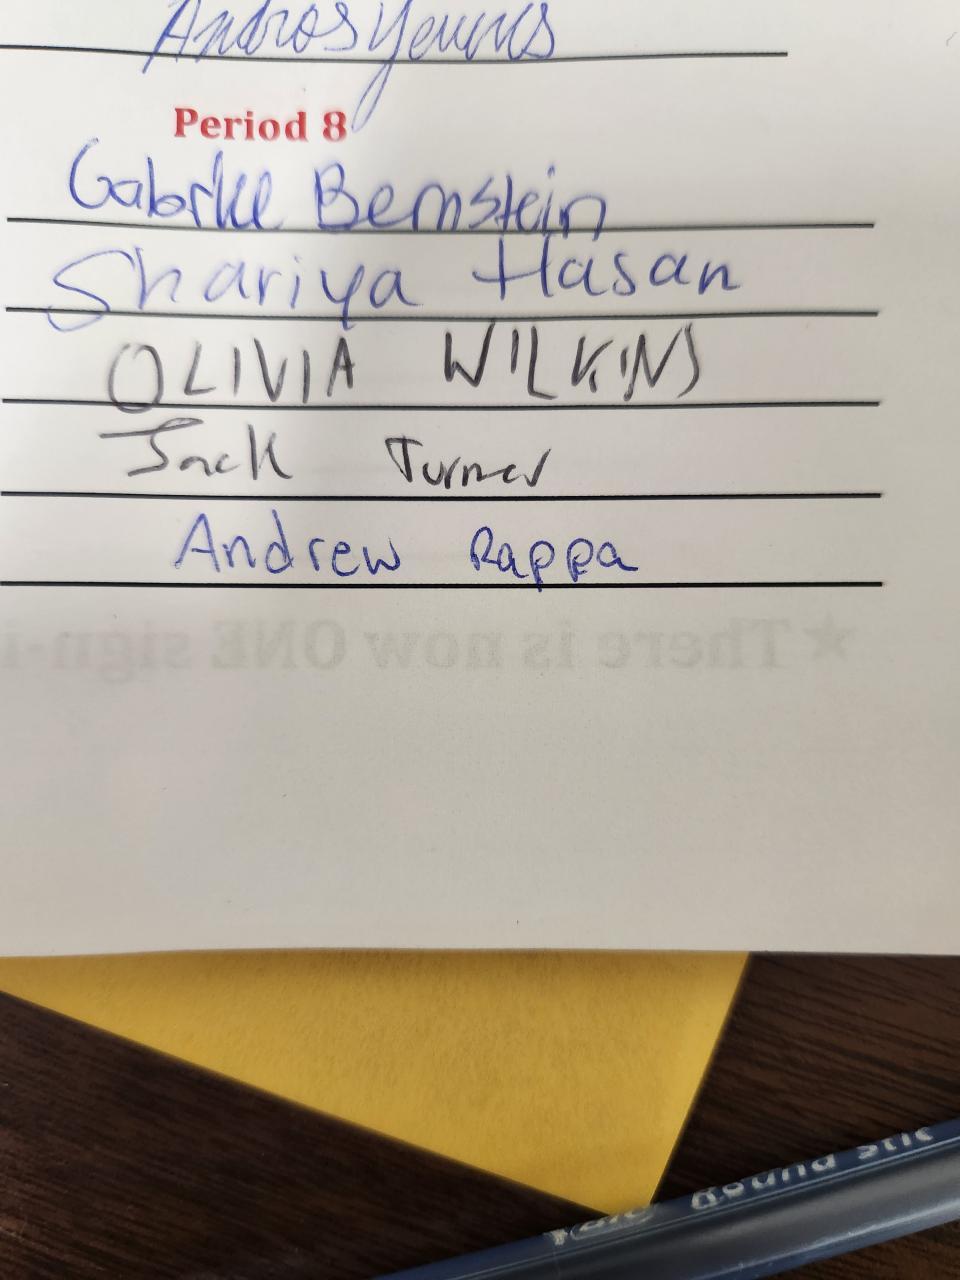 Andros Younis
Period 8
Gabrile Bernstein
Shariya Hasan
OLIVIA WILKINS
Jack Turner
Andrew Rappa
★There is now ONE sign-i
Round Stic